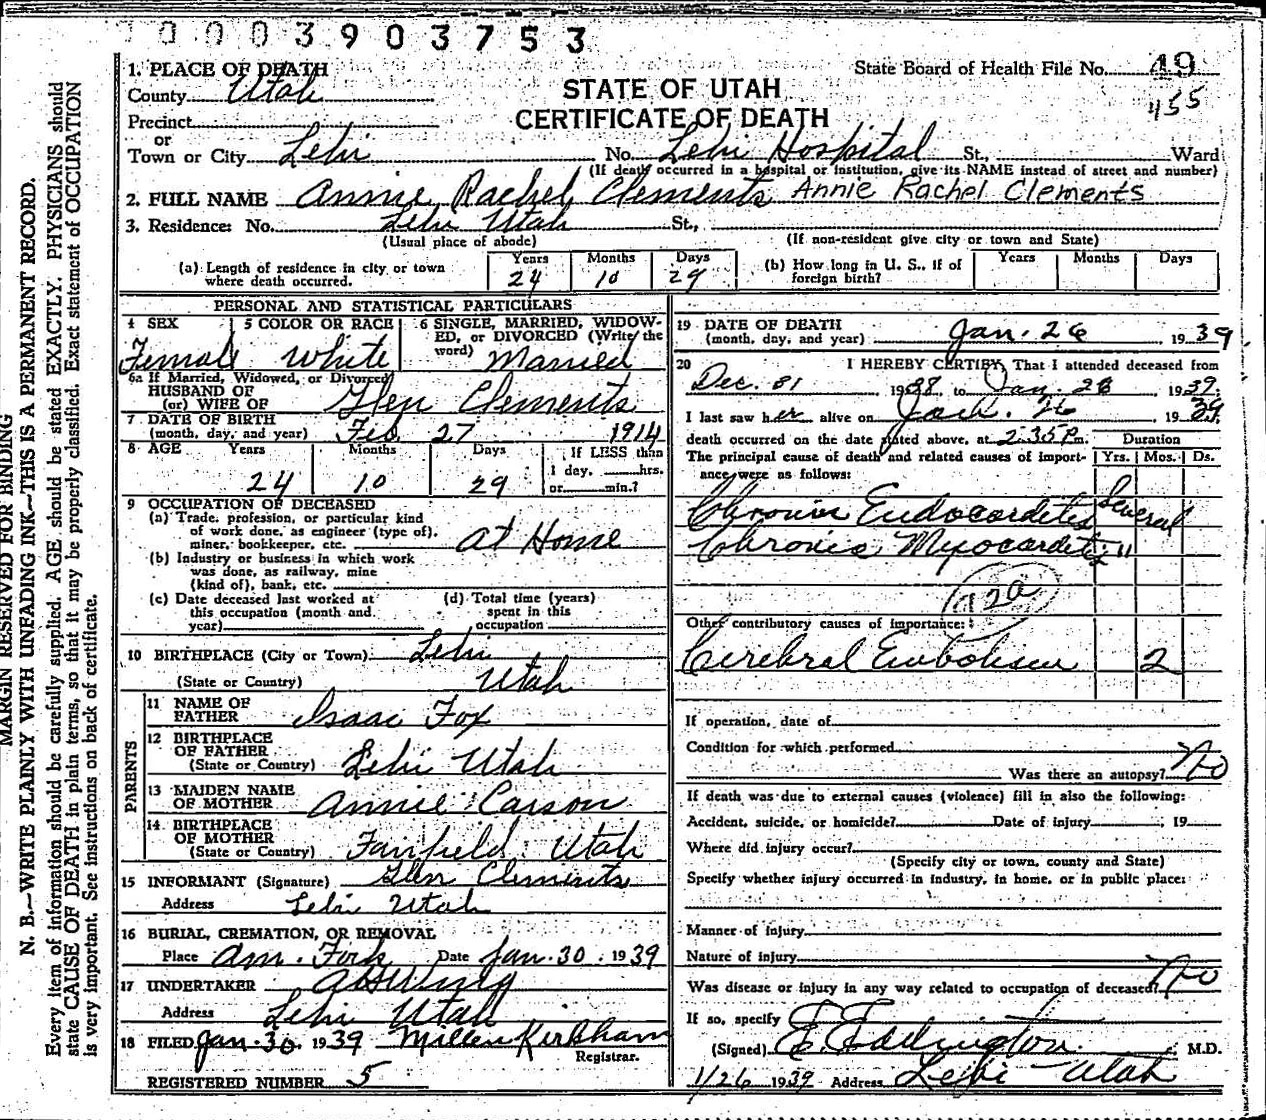 0003903753
1. PLACE OF DEATH
County Utah
State Board of Health File No. 49
455
STATE OF UTAH
CERTIFICATE OF DEATH
Precinct
or
Town or City Lehi No. Lehi Hospital St., Ward
(If death occurred in a hospital or institution, give its NAME instead of street and number)
2. FULL NAME Annie Rachel Clements Annie Rachel Clements
3. Residence: No. Lehi Utah St.,
(Usual place of abode) (If non-resident give city or town and State)
(a) Length of residence in city or town where death occurred. Years 24 Months 10 Days 29
(b) How long in U. S., if of foreign birth? Years Months Days
PERSONAL AND STATISTICAL PARTICULARS
4 SEX Female
5 COLOR OR RACE White
6 SINGLE, MARRIED, WIDOWED, or DIVORCED (Write the word) Married
6a If Married, Widowed, or Divorced
HUSBAND OF
(or) WIFE OF Glen Clements
7 DATE OF BIRTH
(month, day, and year) Feb. 27 1914
8 AGE Years 24 Months 10 Days 29 If LESS than 1 day, hrs. or min.?
9 OCCUPATION OF DECEASED
(a) Trade, profession, or particular kind
of work done, as engineer (type of),
miner, bookkeeper, etc. at Home
(b) Industry or business in which work
was done, as railway, mine
(kind of), bank, etc.
(c) Date deceased last worked at
this occupation (month and
year)
(d) Total time (years)
spent in this
occupation
10 BIRTHPLACE (City or Town) Lehi
(State or Country) Utah
PARENTS
11 NAME OF
FATHER Isaac Fox
12 BIRTHPLACE
OF FATHER
(State or Country) Lehi Utah
13 MAIDEN NAME
OF MOTHER Annie Carson
14 BIRTHPLACE
OF MOTHER
(State or Country) Fairfield Utah
15 INFORMANT (Signature) Glen Clements
Address Lehi Utah
16 BURIAL, CREMATION, OR REMOVAL
Place Am. Fork Date Jan. 30 1939
17 UNDERTAKER
Address Lehi Utah
18 FILED Jan. 30 1939 Millen Kirkham
Registrar.
REGISTERED NUMBER 5
19 DATE OF DEATH
(month, day, and year) Jan. 26 1939
20 I HEREBY CERTIFY, That I attended deceased from
Dec. 31 1938 to Jan. 26 1939.
I last saw her alive on Jan. 26 1939.
death occurred on the date stated above, at 2:35 P. m.
Duration
Yrs. Mos. Ds.
The principal cause of death and related causes of importance were as follows:
Chronic Endocardites Several
Chronic Myocardites "
92a
Other contributory causes of importance:
Cerebral Embolism 2
If operation, date of
Condition for which performed
Was there an autopsy? No
If death was due to external causes (violence) fill in also the following:
Accident, suicide, or homicide? Date of injury 19
Where did injury occur?
(Specify city or town, county and State)
Specify whether injury occurred in industry, in home, or in public place:
Manner of injury
Nature of injury
Was disease or injury in any way related to occupation of deceased? No
If so, specify
(Signed) E. Eddington M.D.
1/26 1939 Address Lehi Utah
MARGIN RESERVED FOR BINDING
N. B.—WRITE PLAINLY WITH UNFADING INK—THIS IS A PERMANENT RECORD.
Every item of information should be carefully supplied. AGE should be stated EXACTLY. PHYSICIANS should
state CAUSE OF DEATH in plain terms, so that it may be properly classified. Exact statement of OCCUPATION
is very important. See instructions on back of certificate.